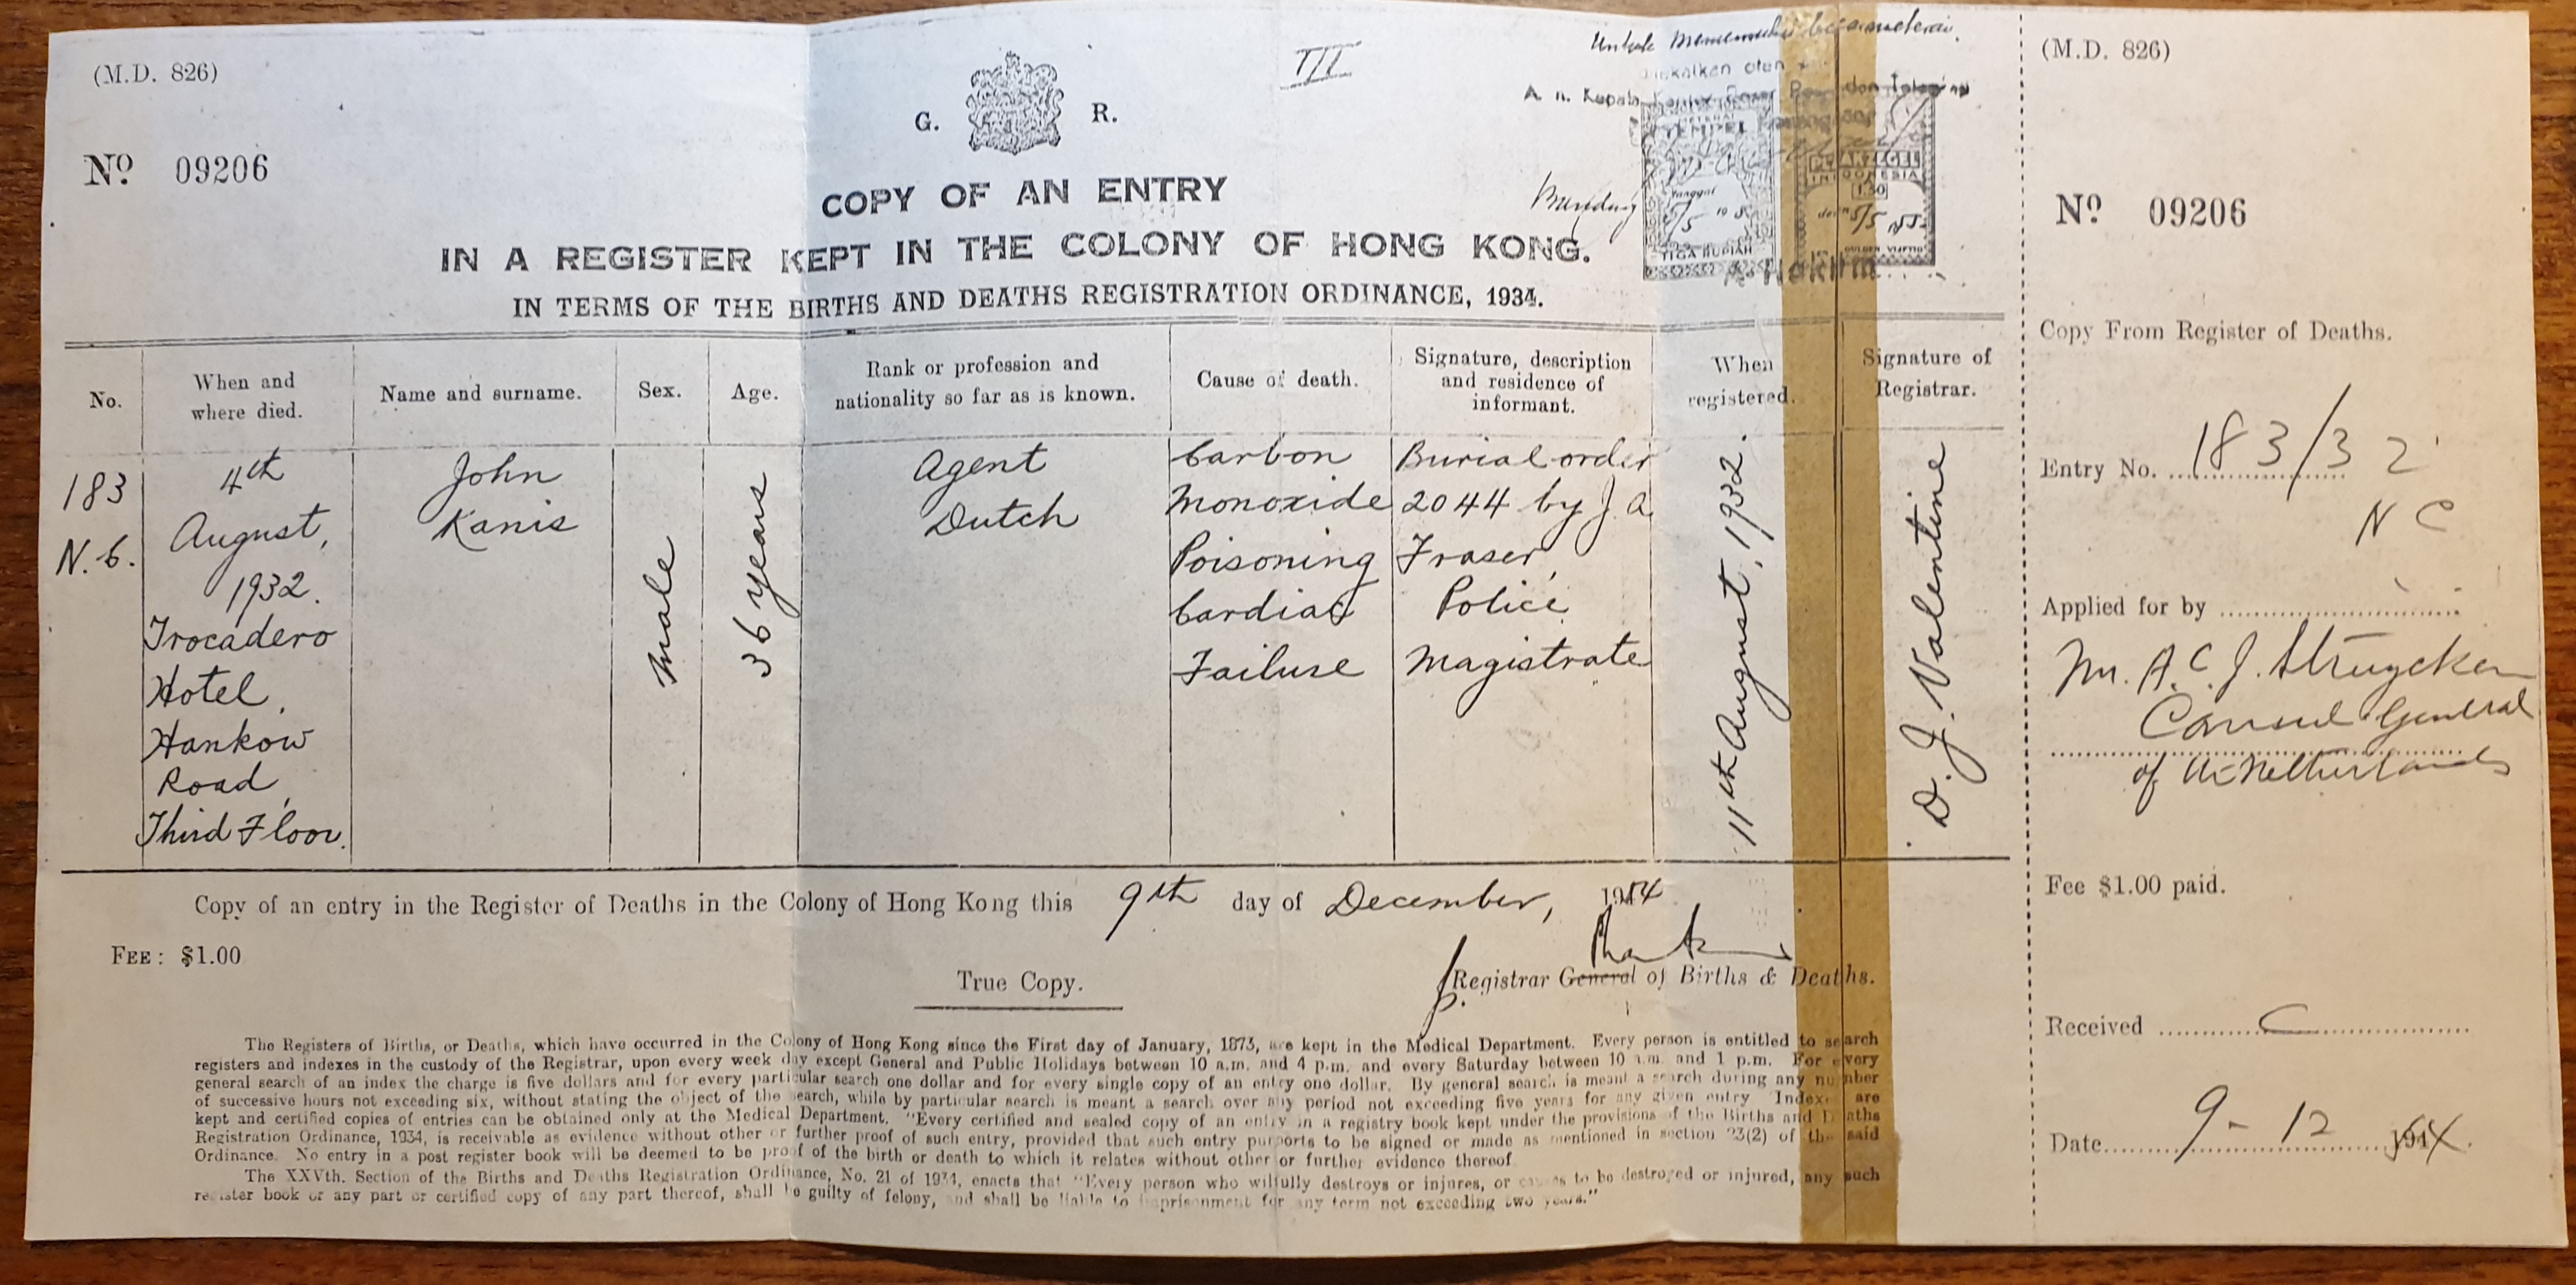 (M.D. 826)
Nº 09206
G. R.
III
A. n. Kepala
TEMPEL
Tanggal
5/5 19
TIGA RUPIAH
INDONESIA
1.50
5/5 '55
GULDEN VIJFTIG
COPY OF AN ENTRY
IN A REGISTER KEPT IN THE COLONY OF HONG KONG.
IN TERMS OF THE BIRTHS AND DEATHS REGISTRATION ORDINANCE, 1934.
No.
When and
where died.
Name and surname.
Sex.
Age.
Rank or profession and
nationality so far as is known.
Cause of death.
Signature, description
and residence of
informant.
When
registered.
Signature of
Registrar.
183
N. 6.
4th
August,
1932.
Trocadero
Hotel,
Hankow
Road,
Third Floor.
John
Kanis
Male
36 years
Agent
Dutch
Carbon
Monoxide
Poisoning
Cardiac
Failure
Burial order
2044 by J. A.
Fraser,
Police
Magistrate
11th August, 1932.
D. J. Valentine
Copy of an entry in the Register of Deaths in the Colony of Hong Kong this 9th day of December, 1954
FEE: $1.00
True Copy.
p. Registrar General of Births & Deaths.
The Registers of Births, or Deaths, which have occurred in the Colony of Hong Kong since the First day of January, 1873, are kept in the Medical Department. Every person is entitled to search
registers and indexes in the custody of the Registrar, upon every week day except General and Public Holidays between 10 a.m. and 4 p.m. and every Saturday between 10 a.m. and 1 p.m. For every
general search of an index the charge is five dollars and for every particular search one dollar and for every single copy of an entry one dollar. By general search is meant a search during any number
of successive hours not exceeding six, without stating the object of the search, while by particular search is meant a search over any period not exceeding five years for any given entry Indexes are
kept and certified copies of entries can be obtained only at the Medical Department. "Every certified and sealed copy of an entry in a registry book kept under the provisions of the Births and Deaths
Registration Ordinance, 1934, is receivable as evidence without other or further proof of such entry, provided that such entry purports to be signed or made as mentioned in section 23(2) of the said
Ordinance. No entry in a post register book will be deemed to be proof of the birth or death to which it relates without other or further evidence thereof
The XXVth. Section of the Births and Deaths Registration Ordinance, No. 21 of 1934, enacts that "Every person who wilfully destroys or injures, or causes to be destroyed or injured, any such
register book or any part or certified copy of any part thereof, shall be guilty of felony, and shall be liable to imprisonment for any term not exceeding two years."
(M.D. 826)
Nº 09206
Copy From Register of Deaths.
Entry No. 183/32
N C
Applied for by
Mr. A.C.J. Struycken
Consul General
of the Netherlands
Fee $1.00 paid.
Received
Date 9 - 12 1954.